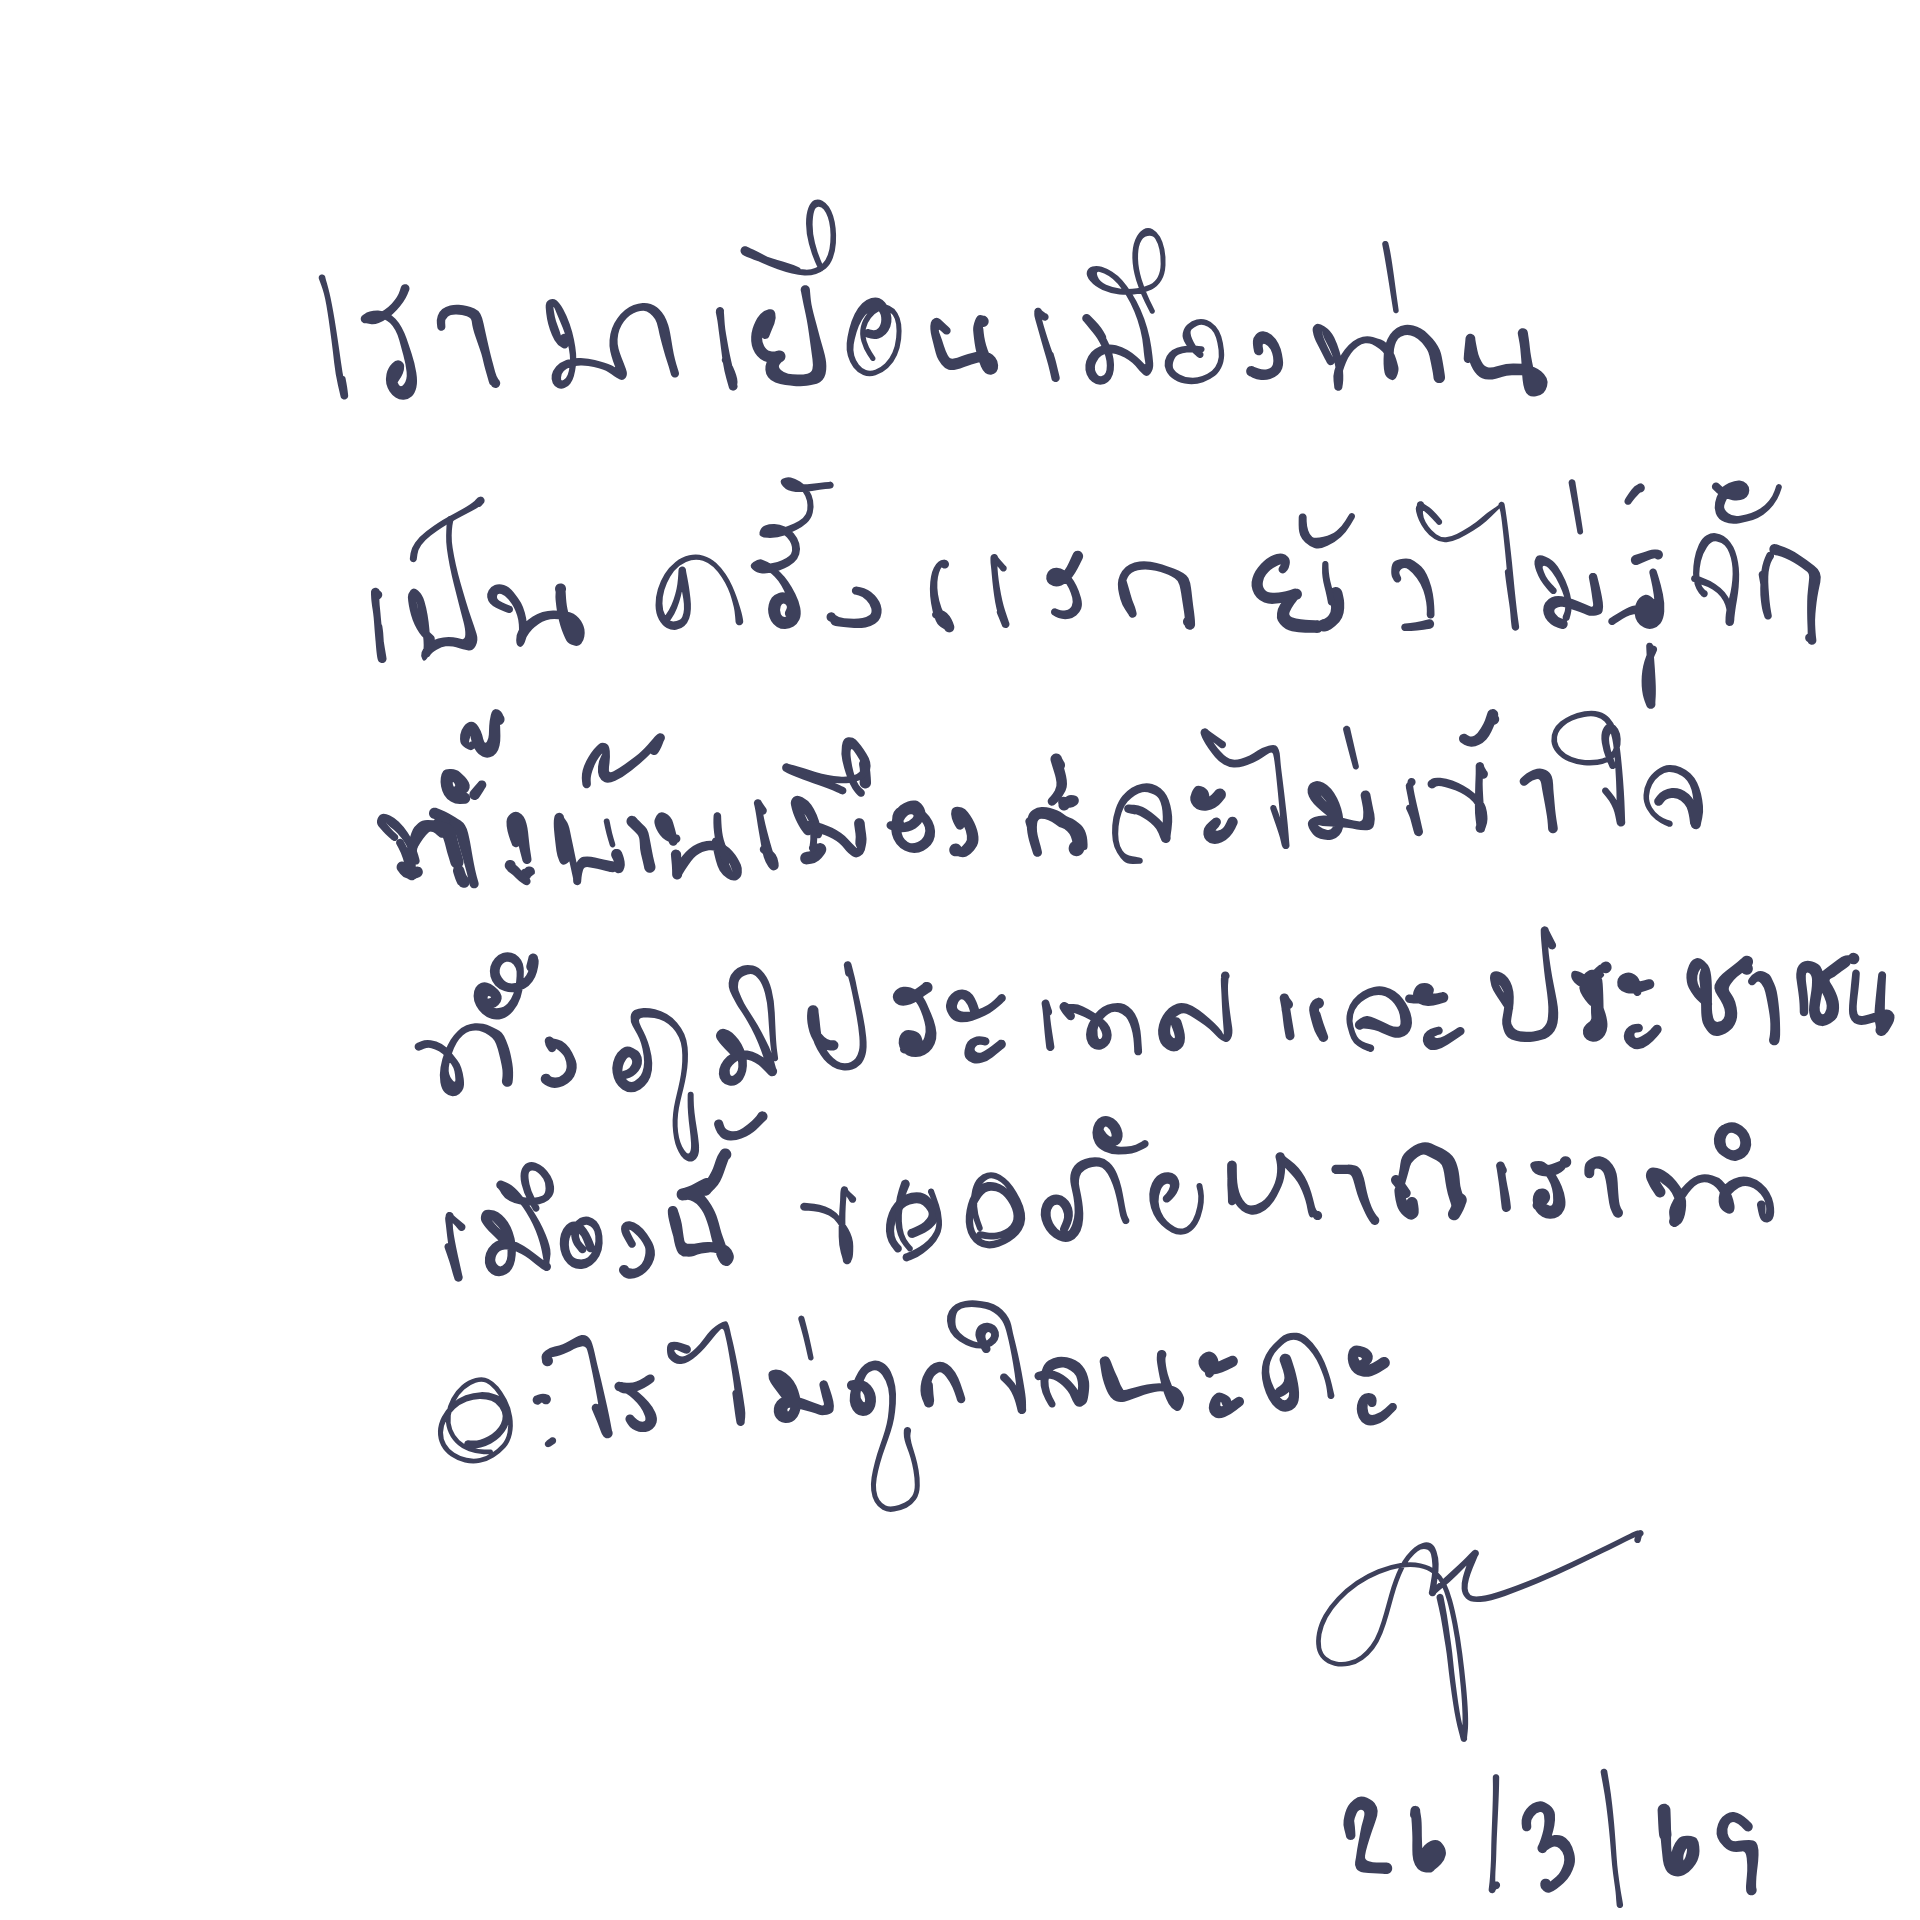 เรามาเยือนเมืองท่าน
เป็นครั้งแรก ยังไม่รู้จัก
เมือง และไม่เข้าใจ
ทั้งภูมิประเทศ และ ประชาชน
เมืองนี้ หากเราทำ
อะไรไม่ถูกใจนะคะ
26/3/69